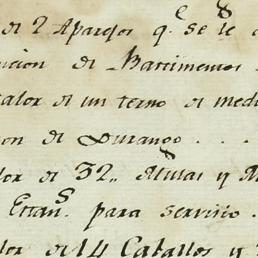 de 2 Aparejos q.e se le
cion de Bastimentos
valor de un terno de medi
on de Durango . . .
lor de 32,, Mulas y M
Estan.s para servicio .
lor de 14 Caballos y